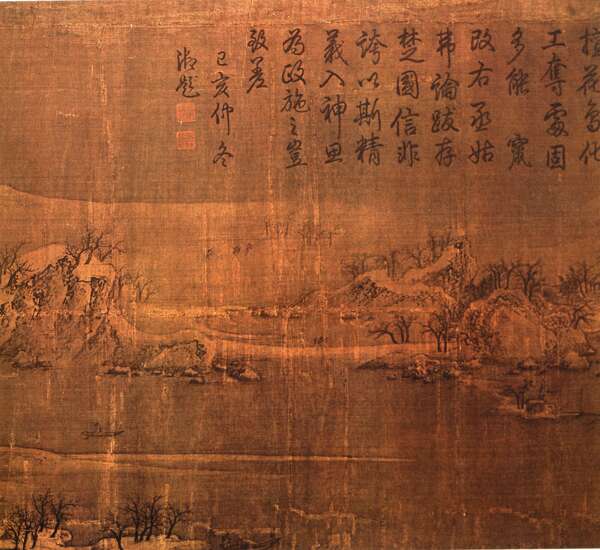 擅花鳥化
工奪處固
多能
改右丞姑
弗論跋存
楚國信非
誇以斯精
義入神思
為政施之豈
敢差
己亥仲冬
御題